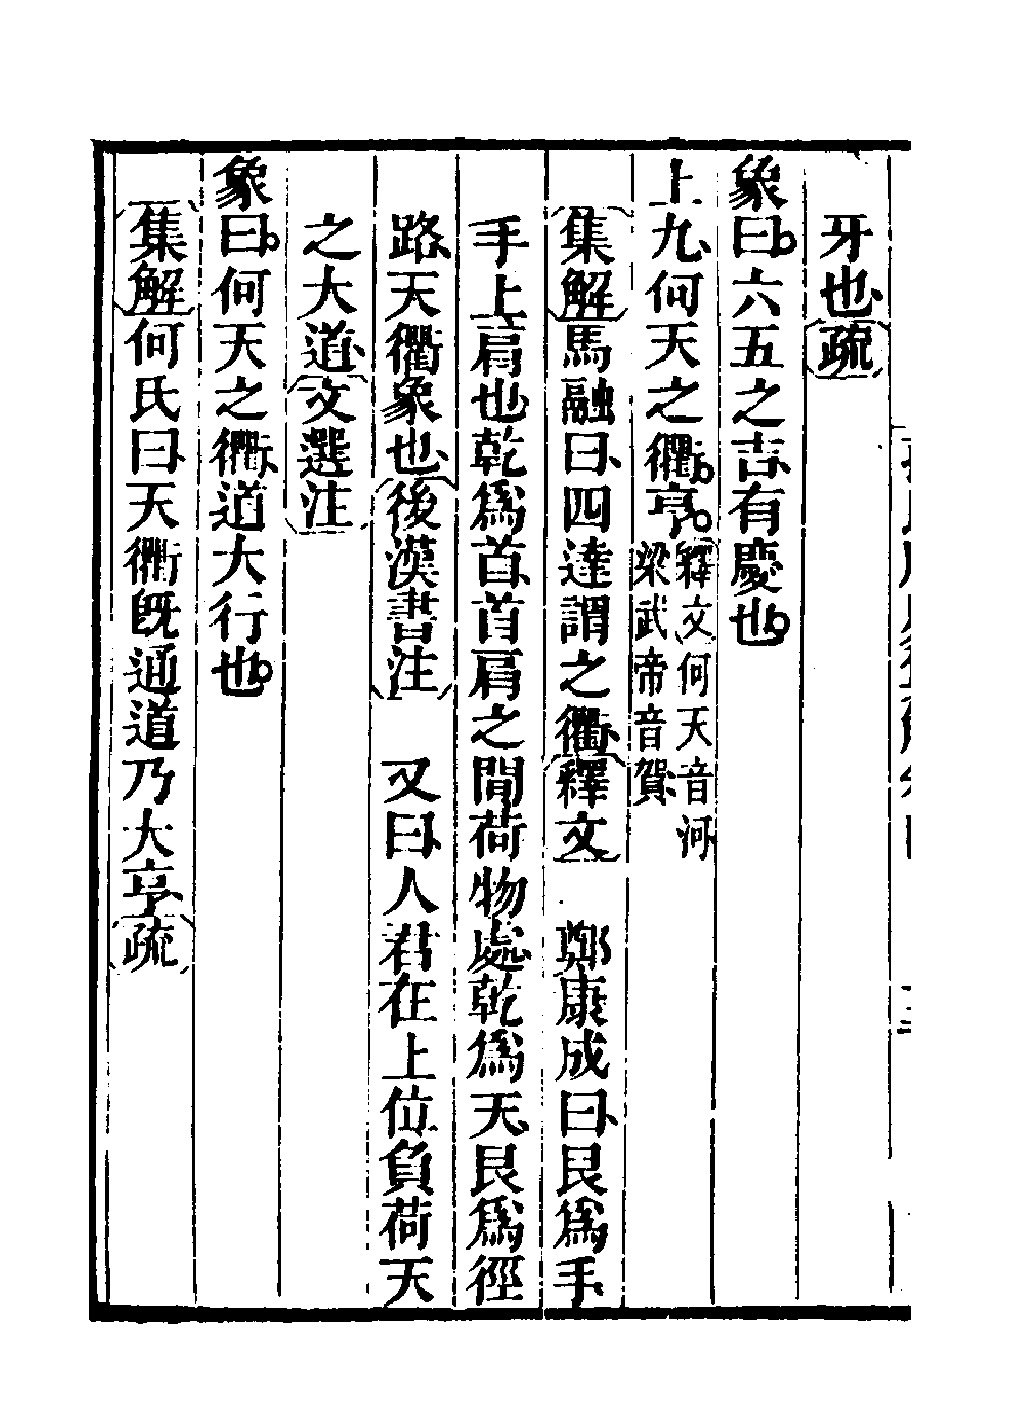 牙也、疏
象曰。六五之吉、有慶也。
上九、何天之衢。亨。釋文何天音河、梁武帝音賀、
集解馬融曰、四達謂之衢、釋文　鄭康成曰、艮爲手、
手上肩也、乾爲首、首肩之間荷物處、乾爲天、艮爲徑
路、天衢象也、後漢書注　又曰、人君在上位、負荷天
之大道、文選注
象曰。何天之衢、道大行也。
集解何氏曰、天衢旣通、道乃大亨、疏